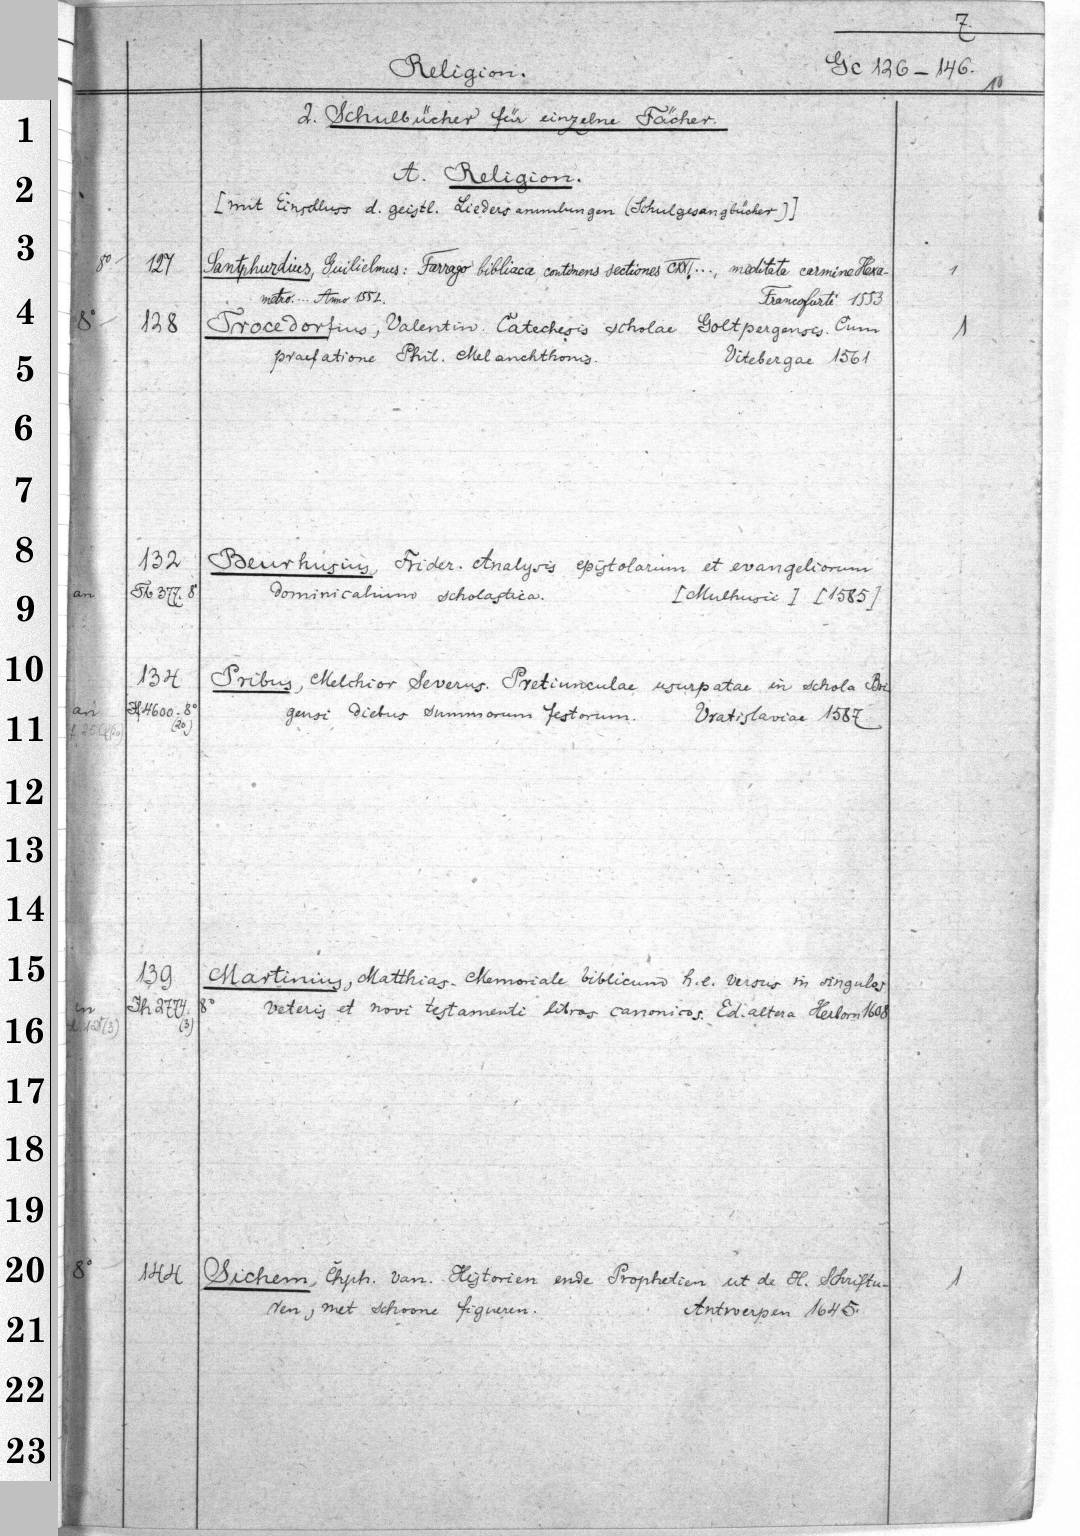 7
Religion. Gc 126 – 146.
10
1
2. Schulbücher für einzelne Fächer.
2
A. Religion.
[mit Einschluss d. geistl. Liedersammlungen (Schulgesangbücher)]
3
8° 127 Santphurdius, Guilielmus: Farrago bibliaca continens sectiones CXXI..., meditata carmine Hexa- 1
metro.... Anno 1552. Francofurti 1553
4
8° 128 Trocedorfius, Valentin. Catechesis scholae Goltpergensis. Cum 1
praefatione Phil. Melanchthonis. Vitebergae 1561
5
6
7
8
132 Beurhusius, Frider. Analysis epistolarum et evangeliorum
an Th 377. 8° dominicalium scholastica. [Mulhusii] [1585]
9
10
134 Pribus, Melchior Severus. Pretiunculae usurpatae in schola Bri
an 4600. 8° gensi diebus summorum festorum. Vratislaviae 1587
(20)
11
12
13
14
15
139 Martinius, Matthias. Memoriale biblicum h.e. versus in singulos
Th 2774. 8° veteris et novi testamenti libros canonicos. Ed. altera Herborn 1608
(3)
16
17
18
19
20
8° 144 Sichem, Chph. van. Historien ende Prophetien ut de H. Schriftu- 1
ren, met schoone figueren. Antwerpen 1645.
21
22
23